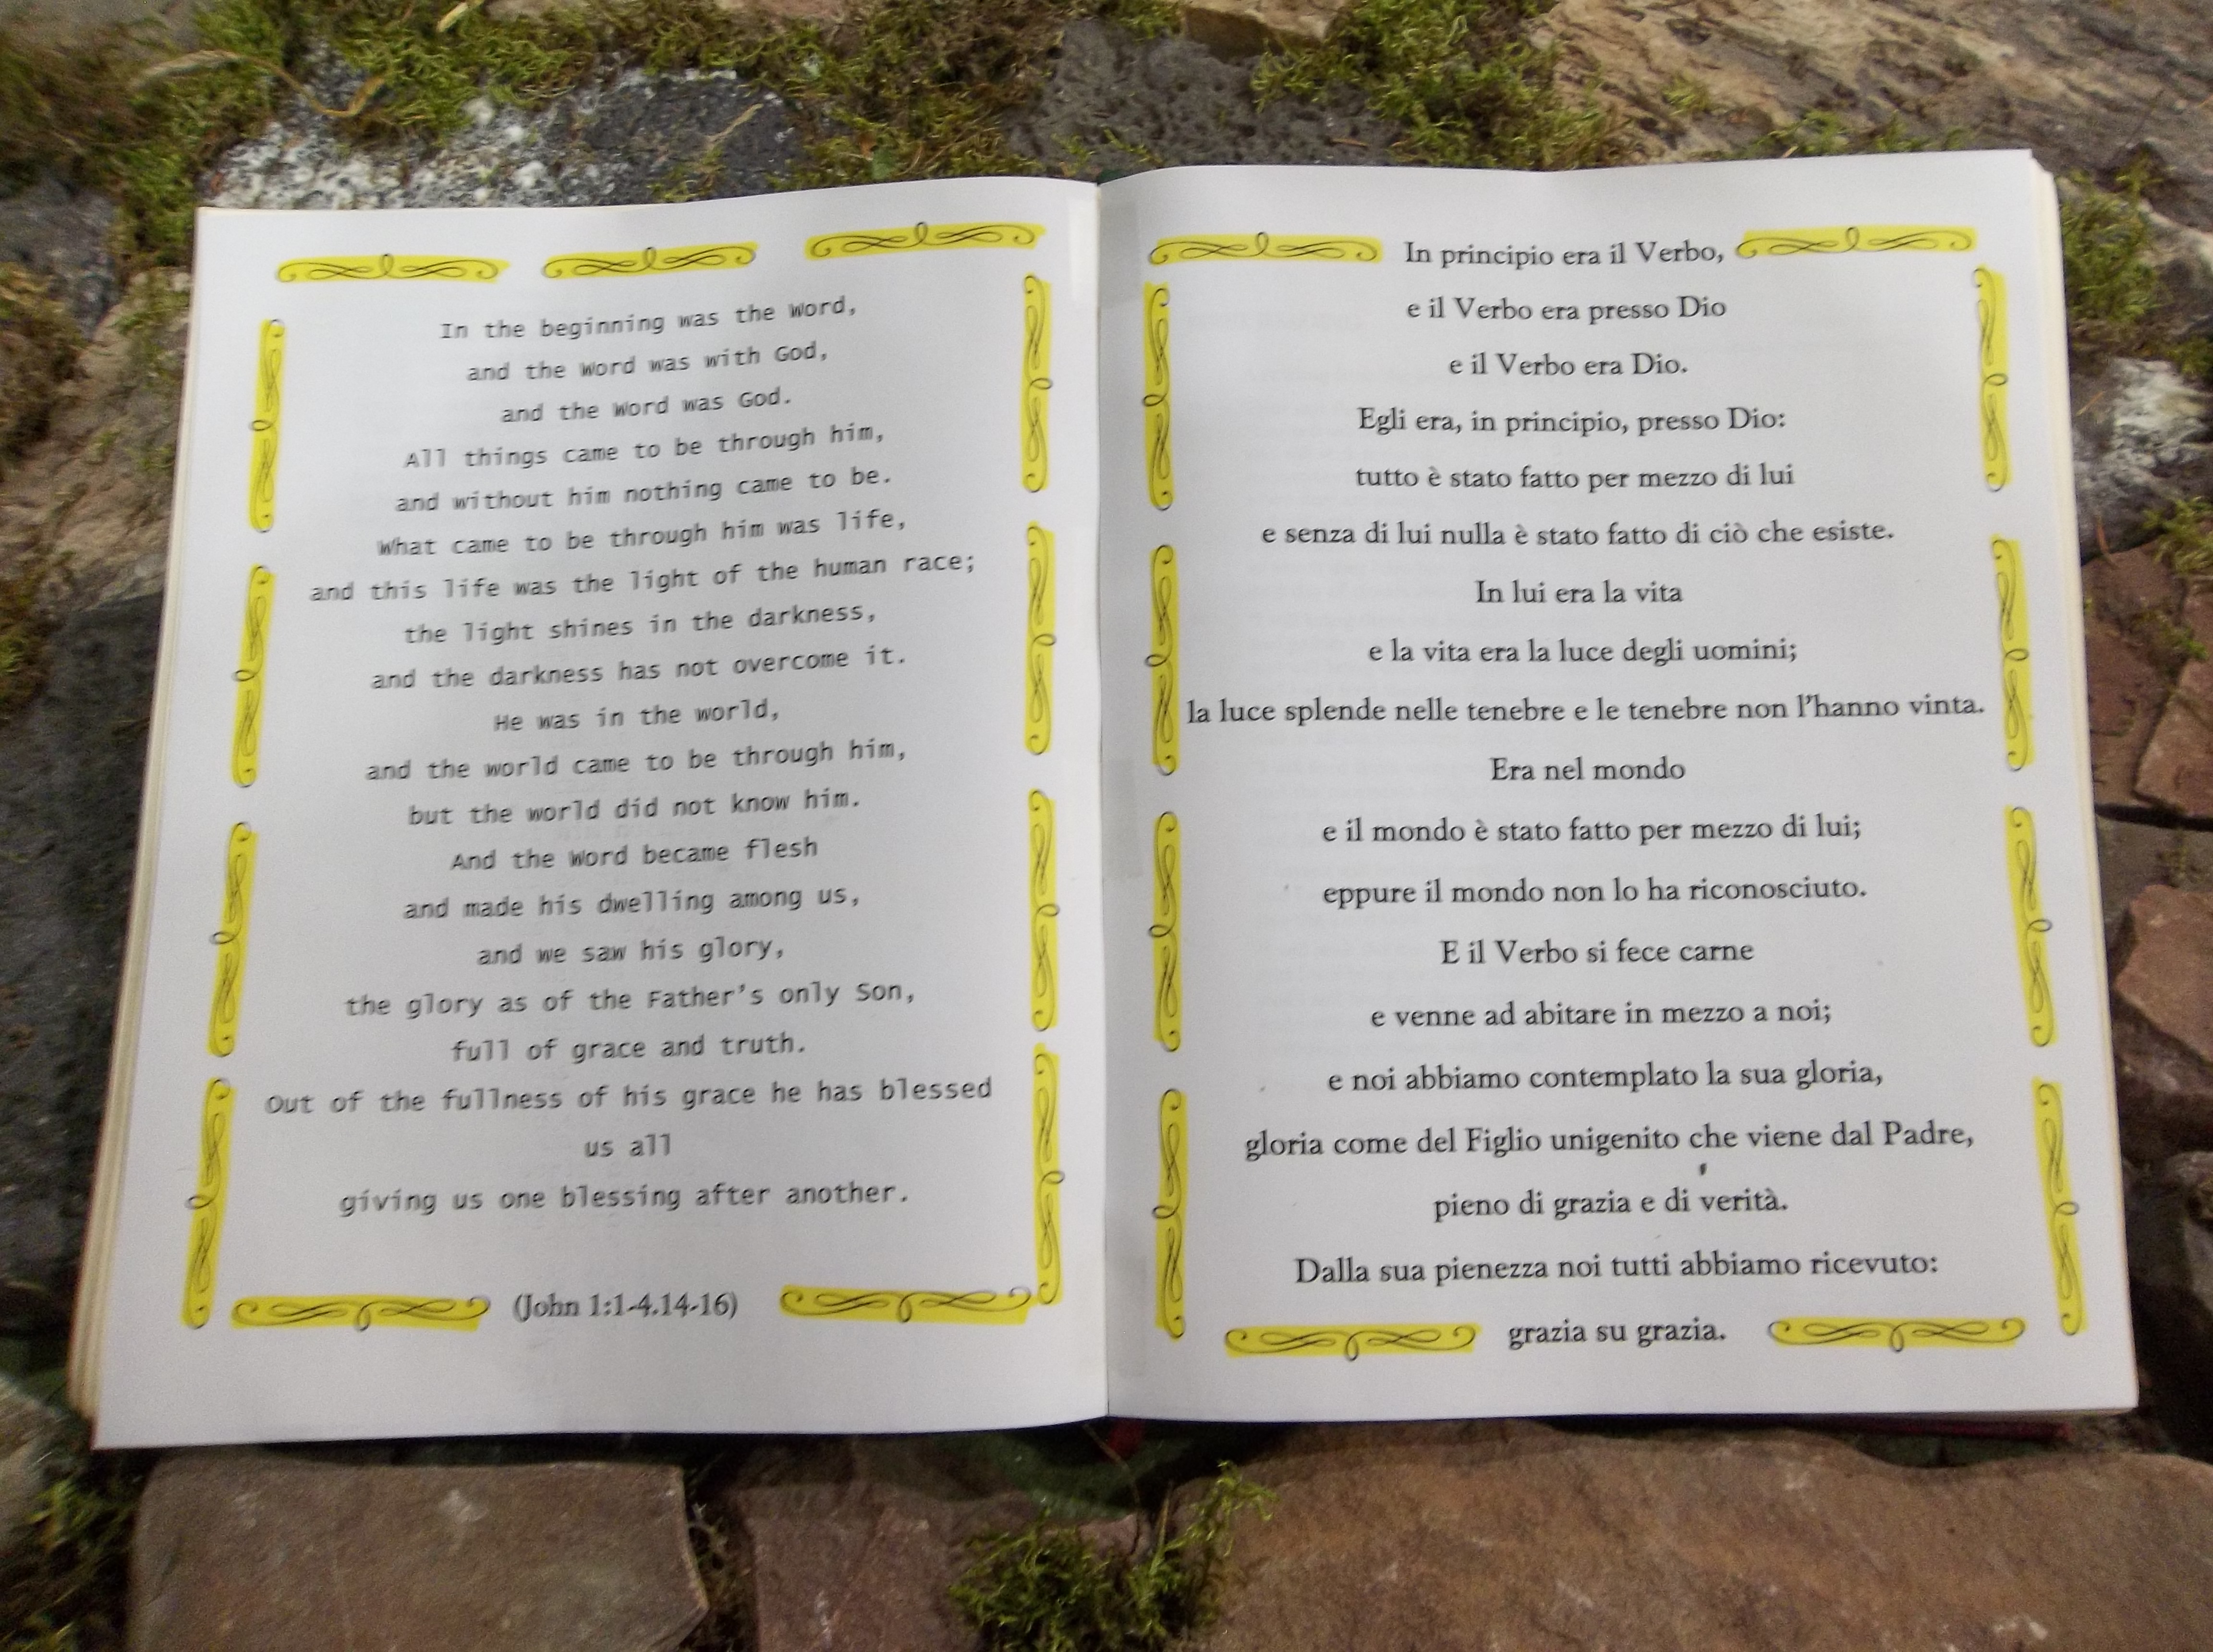 In the beginning was the Word,
and the Word was with God,
and the Word was God.
All things came to be through him,
and without him nothing came to be.
What came to be through him was life,
and this life was the light of the human race;
the light shines in the darkness,
and the darkness has not overcome it.
He was in the world,
and the world came to be through him,
but the world did not know him.
And the Word became flesh
and made his dwelling among us,
and we saw his glory,
the glory as of the Father's only Son,
full of grace and truth.
Out of the fullness of his grace he has blessed
us all
giving us one blessing after another.
(John 1:1-4.14-16)
In principio era il Verbo,
e il Verbo era presso Dio
e il Verbo era Dio.
Egli era, in principio, presso Dio:
tutto è stato fatto per mezzo di lui
e senza di lui nulla è stato fatto di ciò che esiste.
In lui era la vita
e la vita era la luce degli uomini;
la luce splende nelle tenebre e le tenebre non l'hanno vinta.
Era nel mondo
e il mondo è stato fatto per mezzo di lui;
eppure il mondo non lo ha riconosciuto.
E il Verbo si fece carne
e venne ad abitare in mezzo a noi;
e noi abbiamo contemplato la sua gloria,
gloria come del Figlio unigenito che viene dal Padre,
pieno di grazia e di verità.
Dalla sua pienezza noi tutti abbiamo ricevuto:
grazia su grazia.